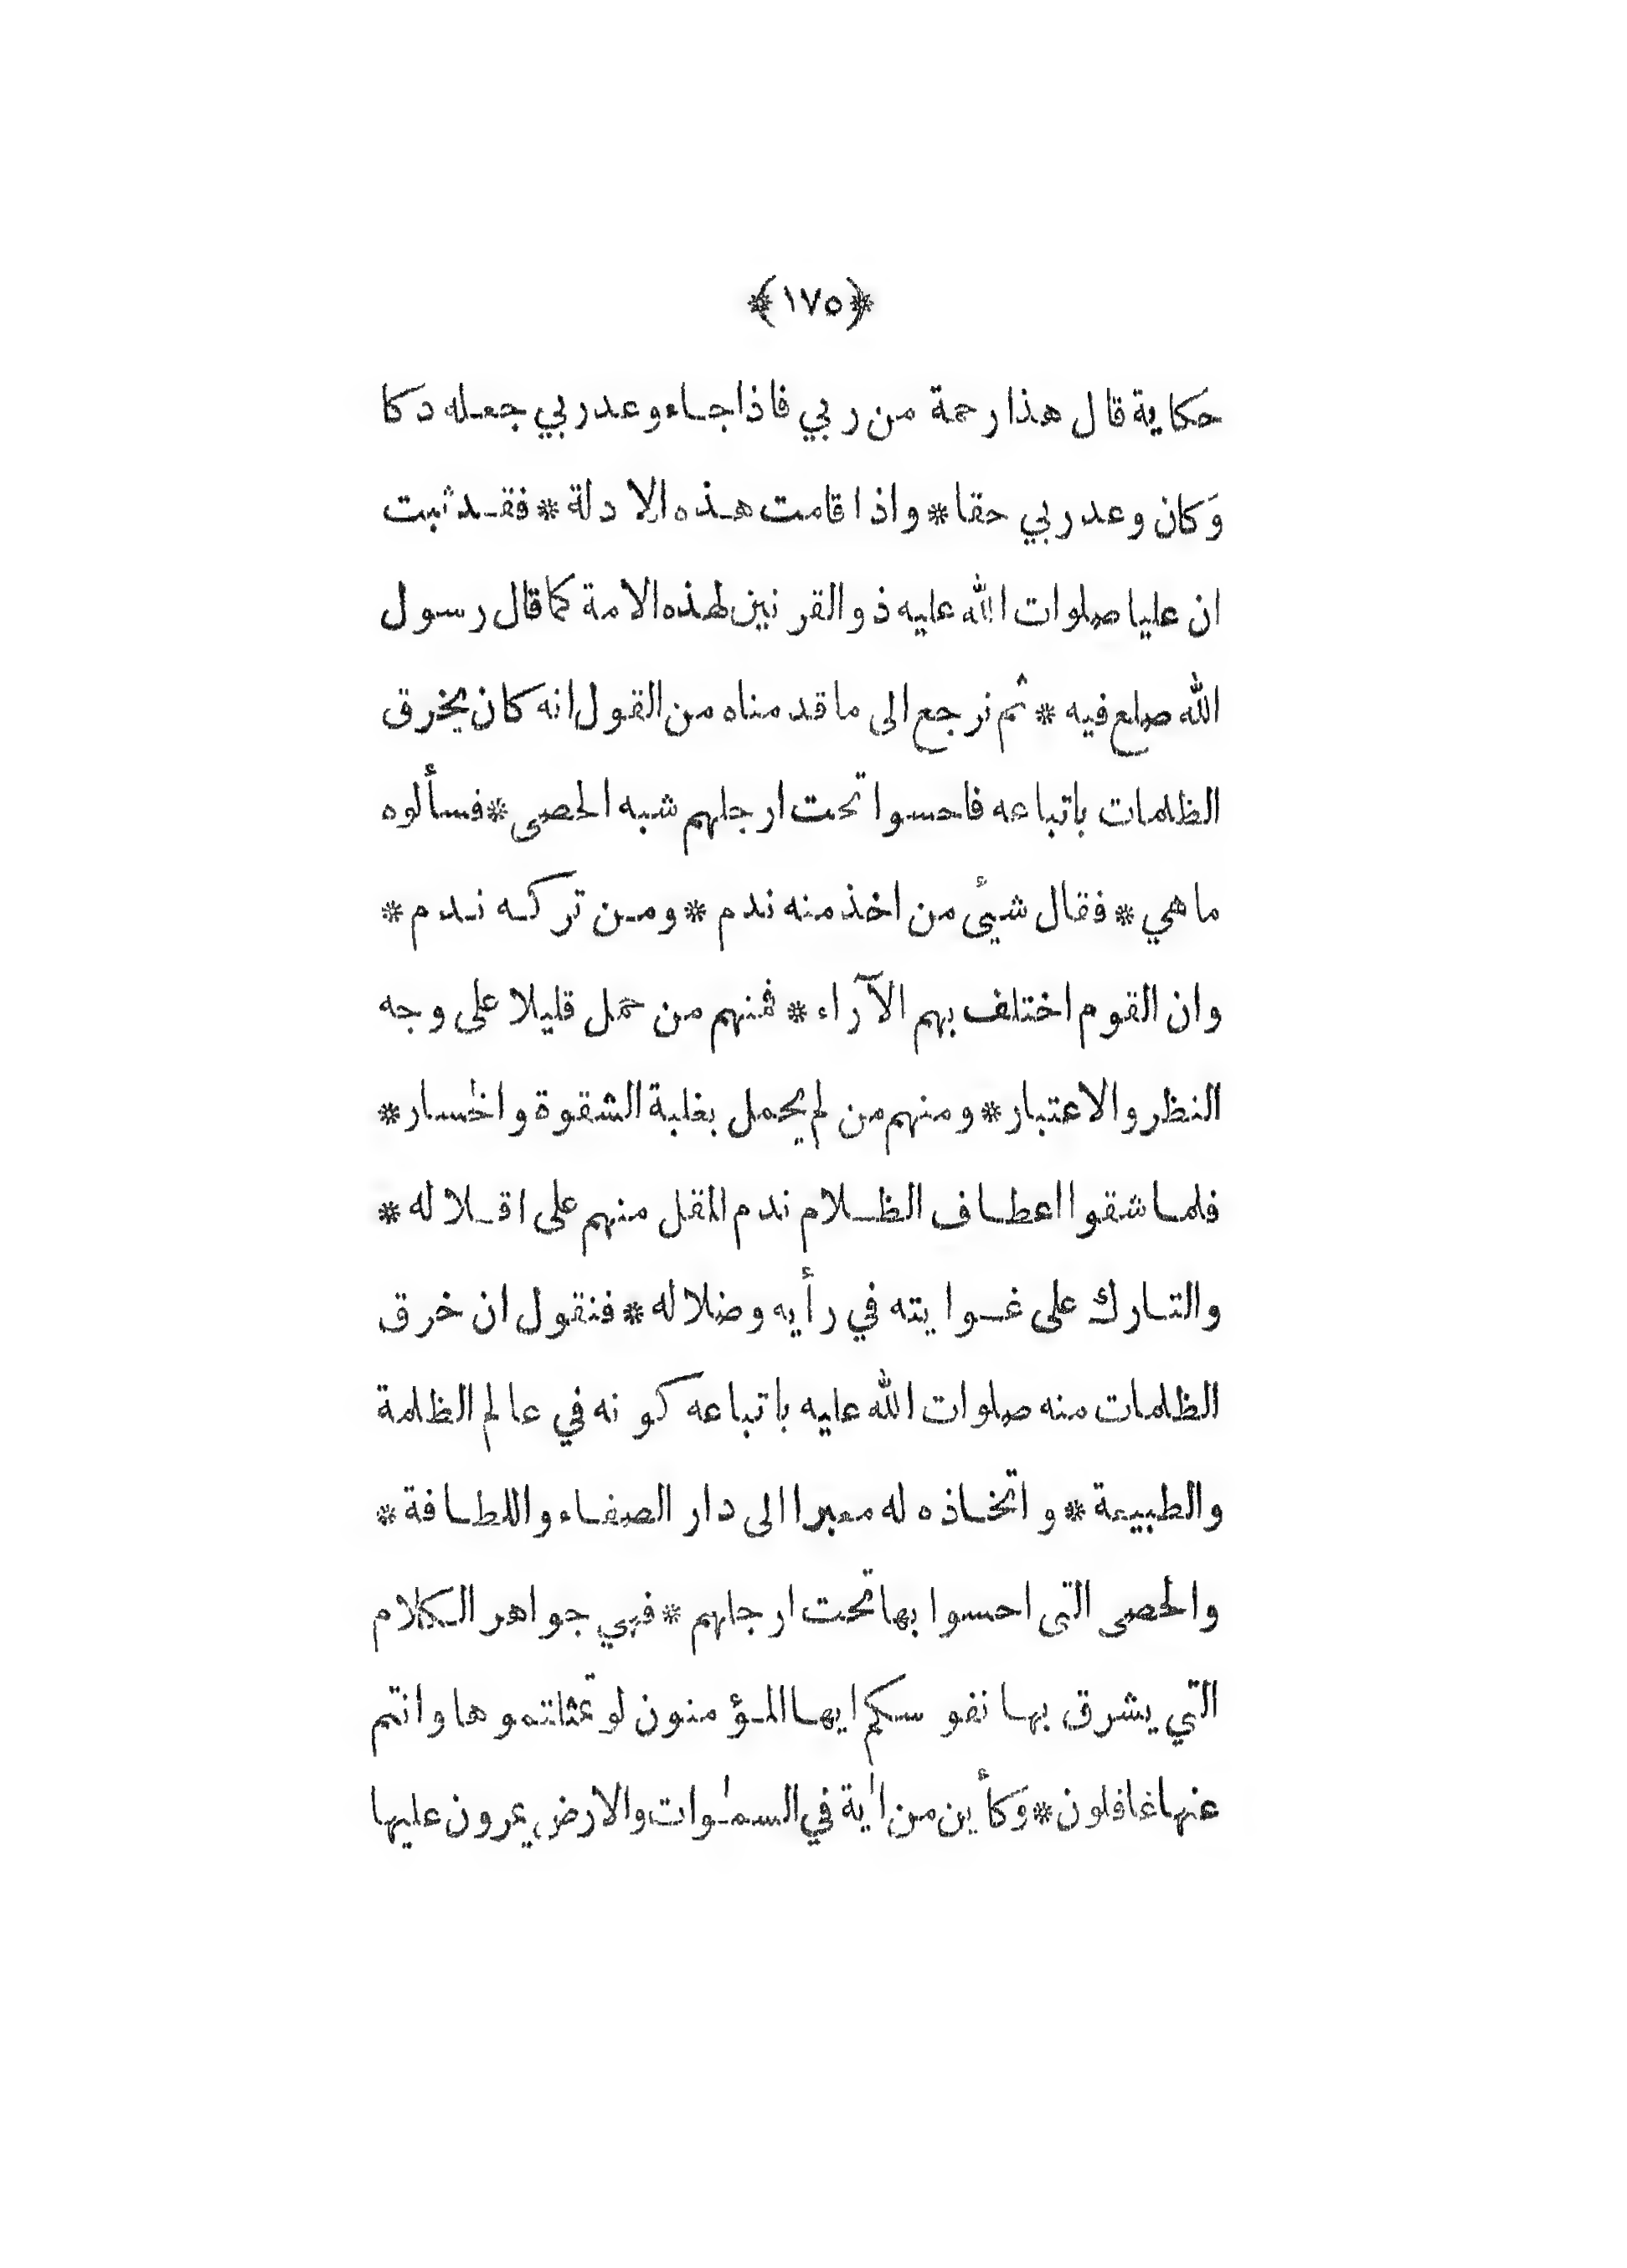 ﴿١٧٥﴾
حكاية قال هذا رحمة من ربي فاذا جاء وعد ربي جعله دكا
وكان وعد ربي حقا * واذا قامت هذه الادلة * فقد ثبت
ان عليا صلوات الله عليه ذو القرنين لهذه الامة كما قال رسول
الله صلع فيه * ثم نرجع الى ما قدمناه من القول انه كان يخرق
الظلمات باتباعه فاحسوا تحت ارجلهم شبه الحصى * فسألوه
ما هي * فقال شيئ من اخذ منه ندم * ومن تركه ندم *
وان القوم اختلف بهم الآراء * فمنهم من حمل قليلا على وجه
النظر والاعتبار * ومنهم من لم يحمل بغلبة الشقوة واخسار *
فلما شقوا اعطاف الظلام ندم المقل منهم على اقلاله *
والتارك على غوايته في رأيه وضلاله * فنقول ان خرق
الظلمات منه صلوات الله عليه باتباعه كونه في عالم الظلمة
والطبيعة * واتخاذه له معبرا الى دار الصفاء واللطافة *
والحصى التى احسوا بها تحت ارجلهم * فهي جواهر الكلام
التي يشرق بها نفوسكم ايها المؤمنون لو تمثلتموها وانتم
عنها غافلون * وكأين من اٰية في السمٰوات والارض يمرون عليها